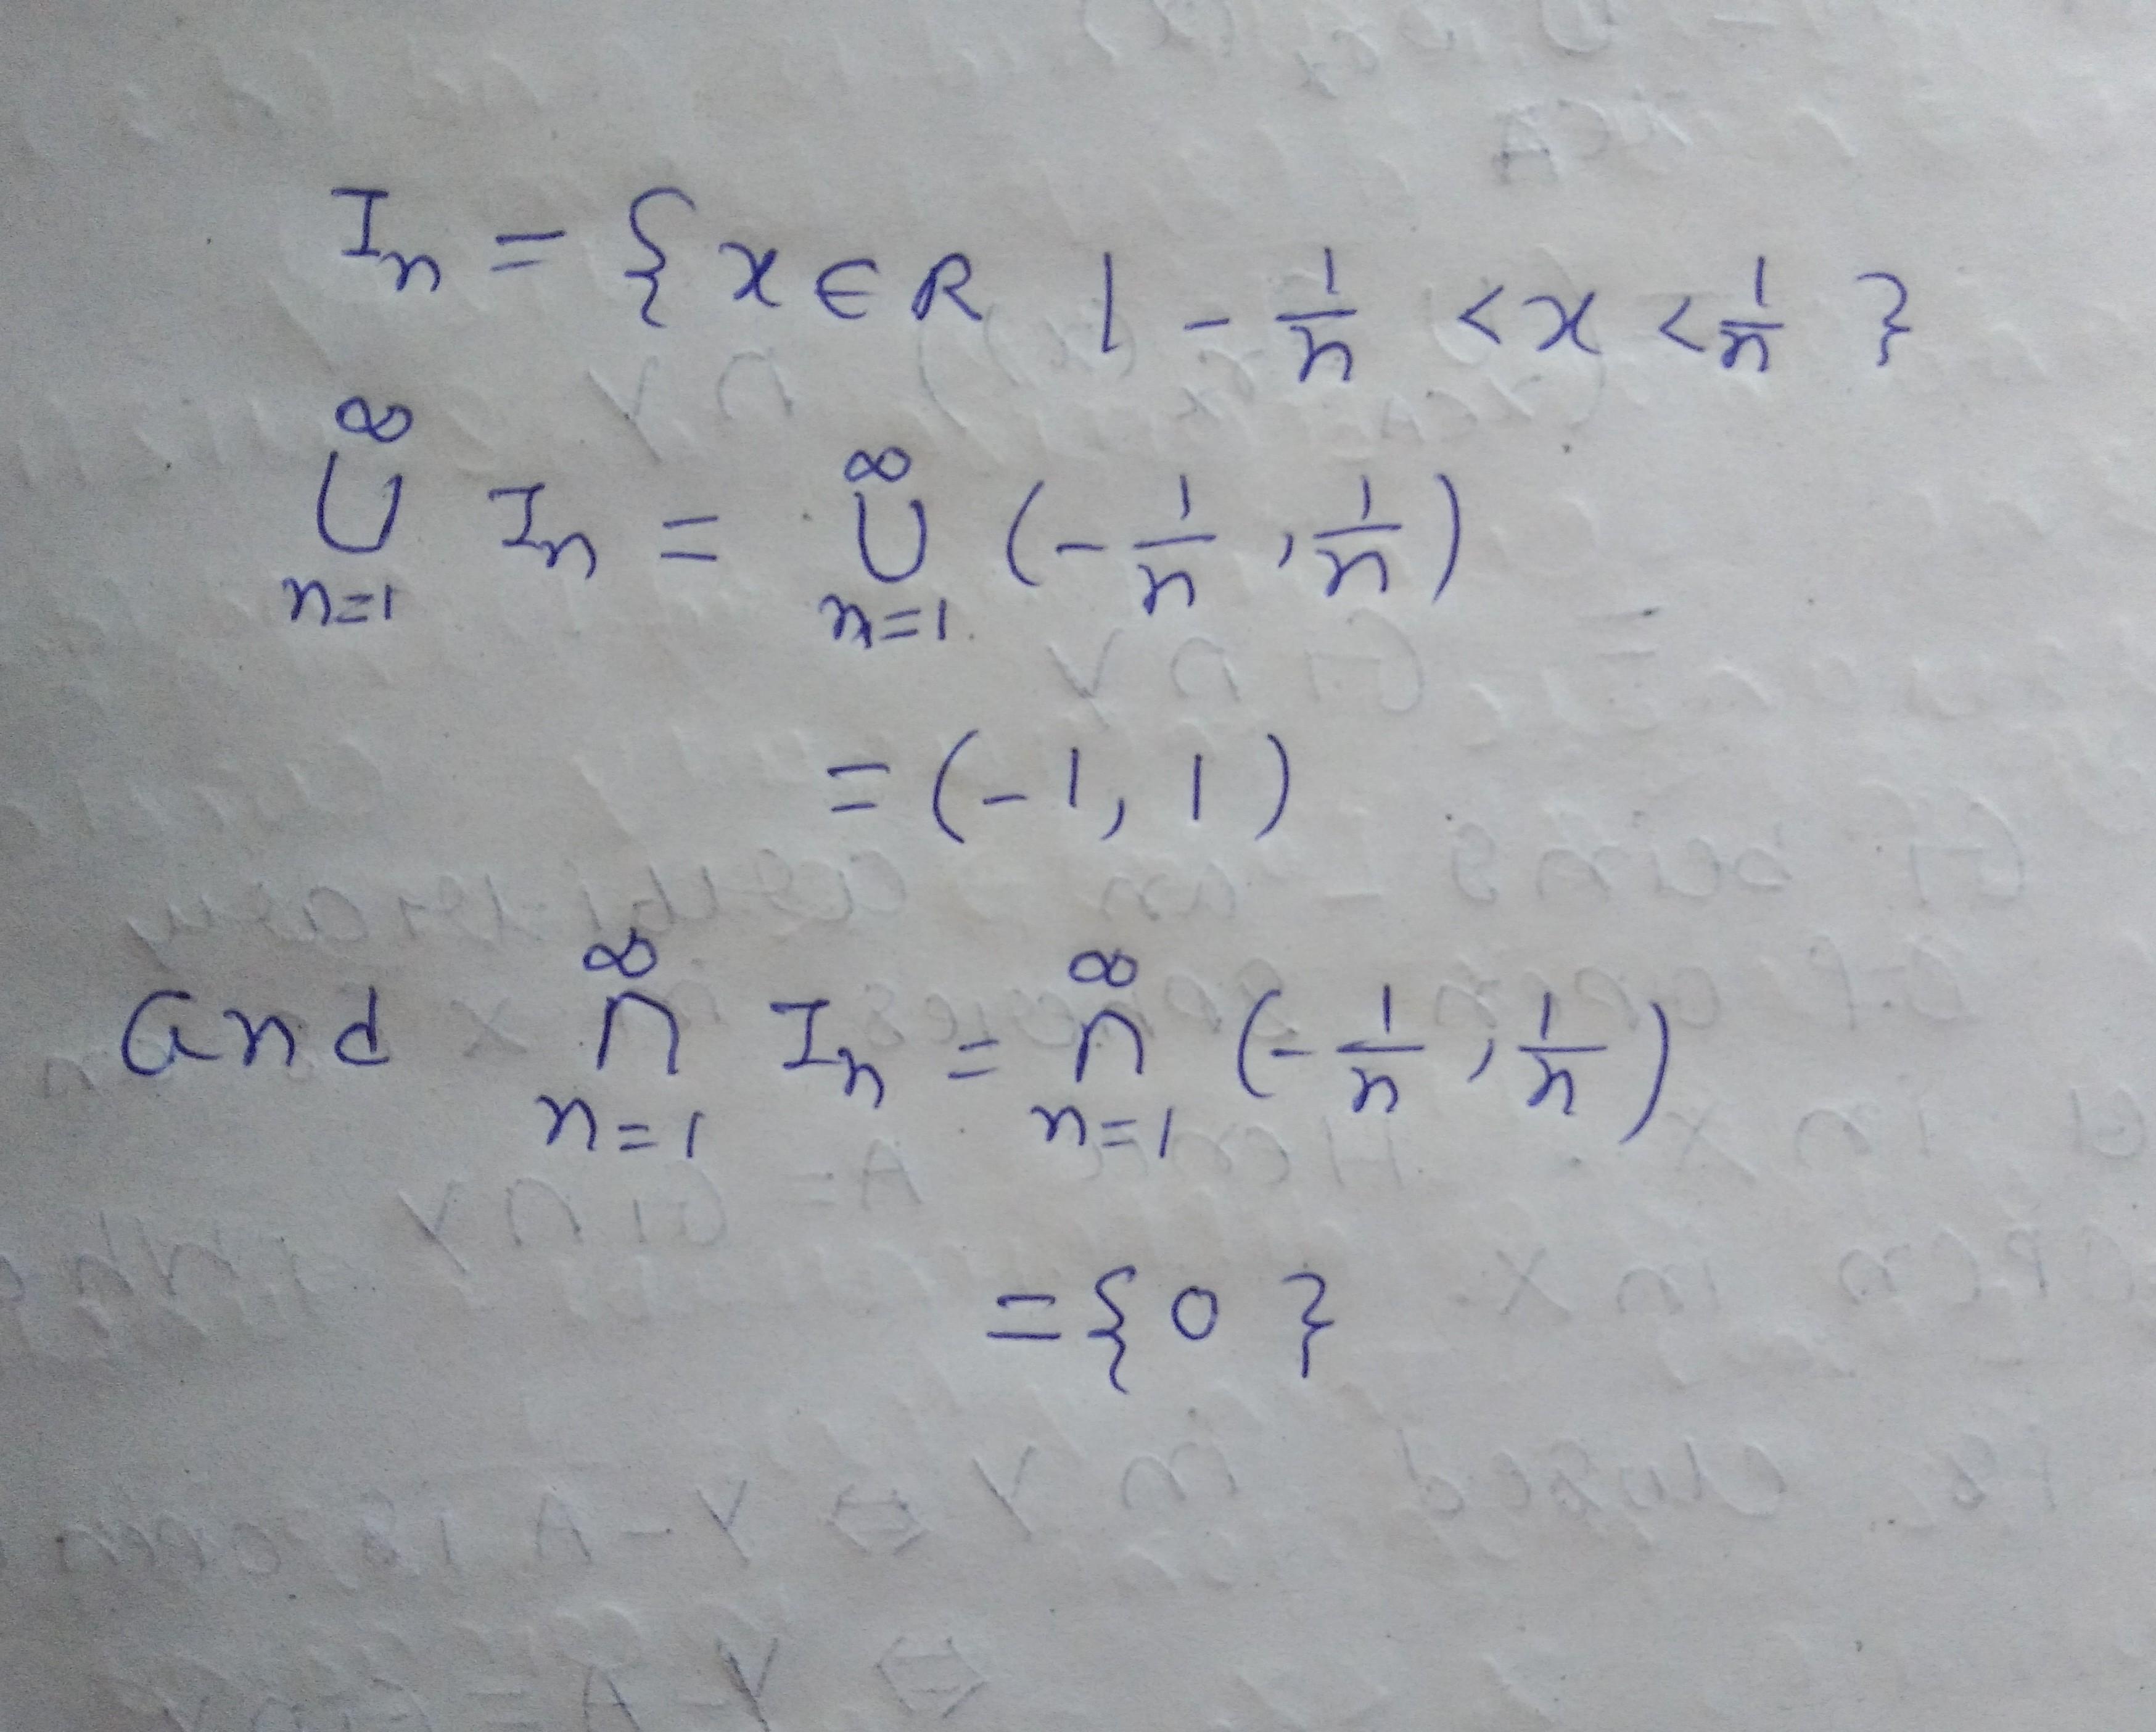 Iₙ = {x ∈ R | -1/n < x < 1/n}
∞⋃n=1 Iₙ = ∞⋃n=1 (-1/n, 1/n)
= (-1, 1)
and ∞⋂n=1 Iₙ = ∞⋂n=1 (-1/n, 1/n)
= {0}